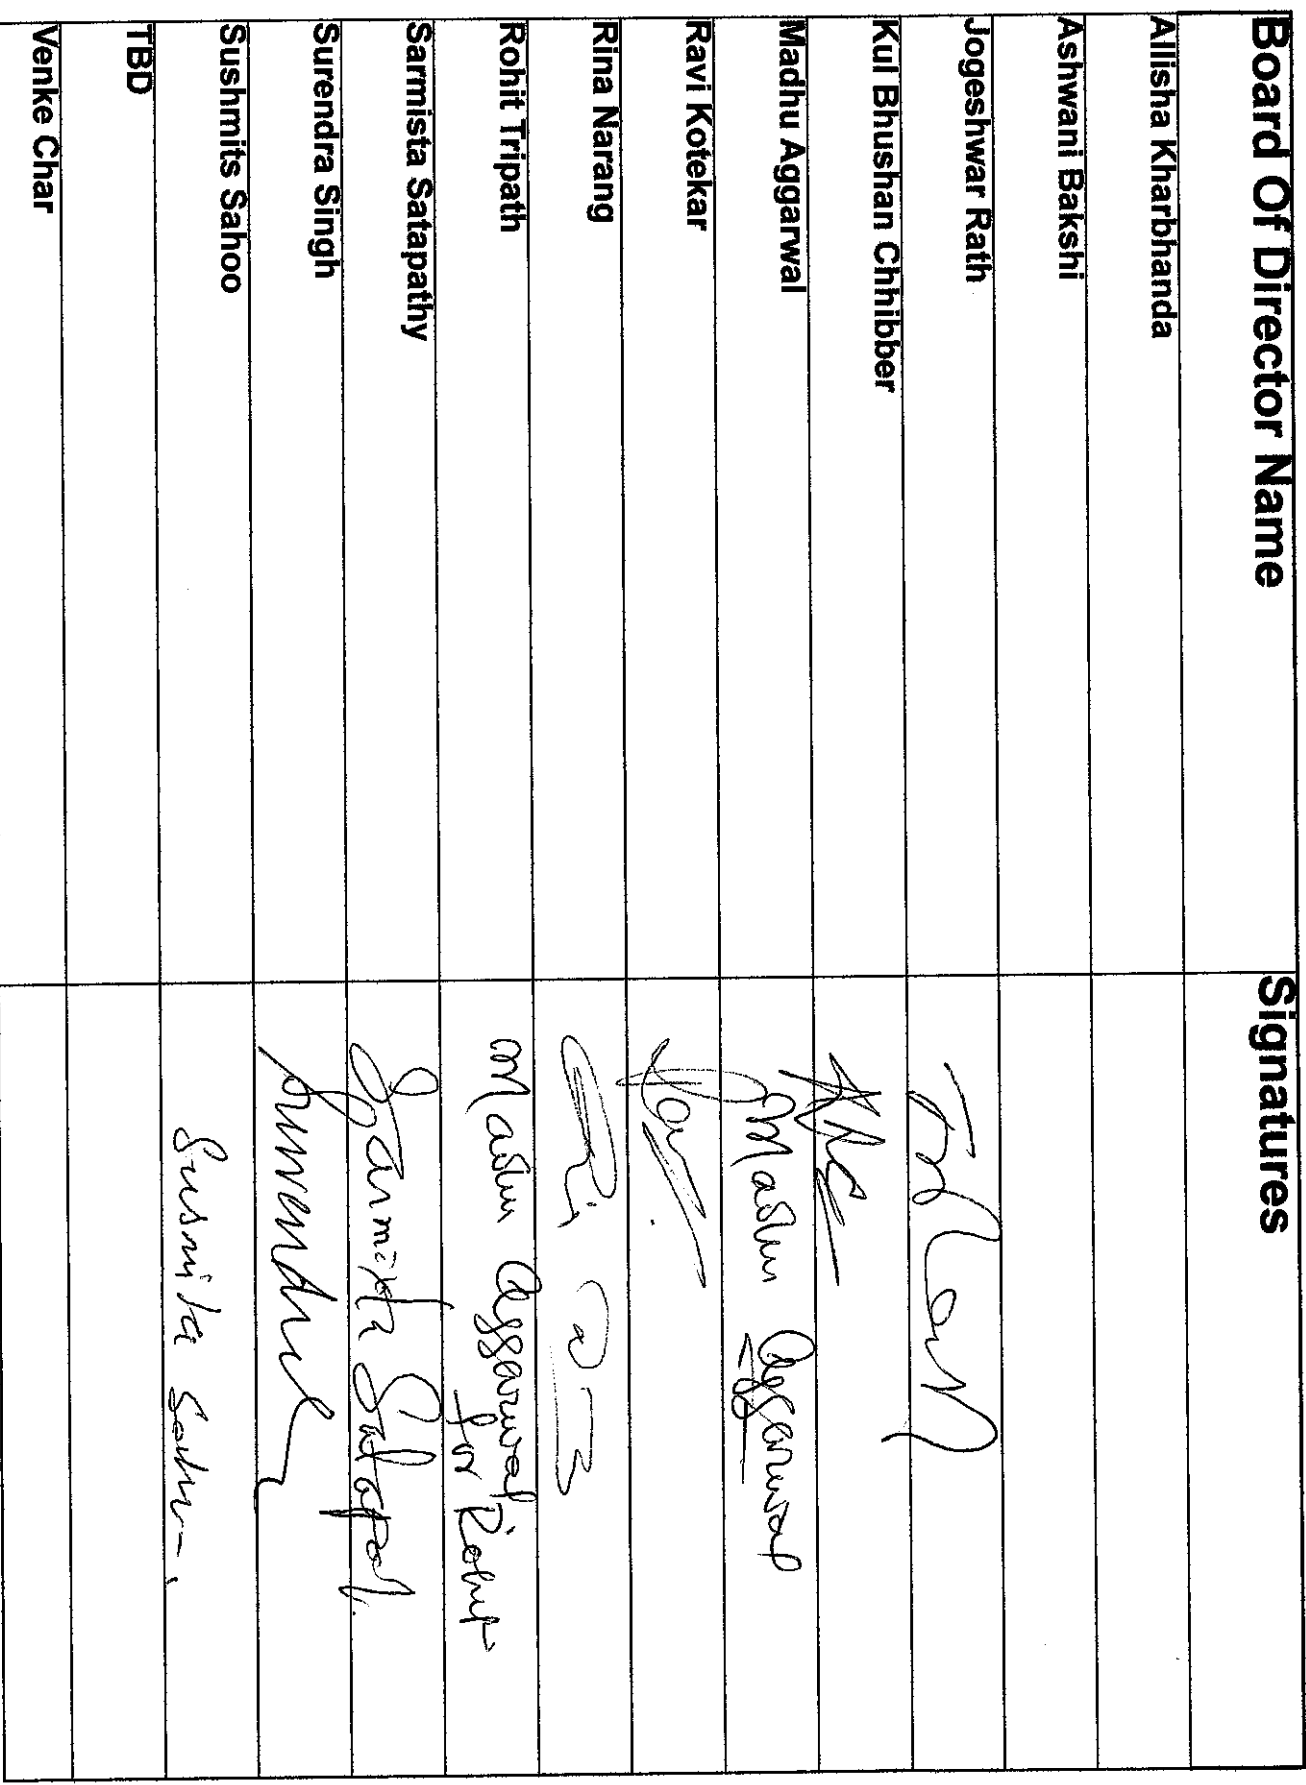 Board Of Director Name Signatures
Allisha Kharbhanda
Ashwani Bakshi
Jogeshwar Rath
Kul Bhushan Chhibber
Madhu Aggarwal Madhu Aggarwal
Ravi Kotekar
Rina Narang
Rohit Tripath Madhu Aggarwal
for Rohit
Sarmista Satapathy Sarmista
Surendra Singh Surendra
Sushmits Sahoo Susmita Sahoo
TBD
Venke Char